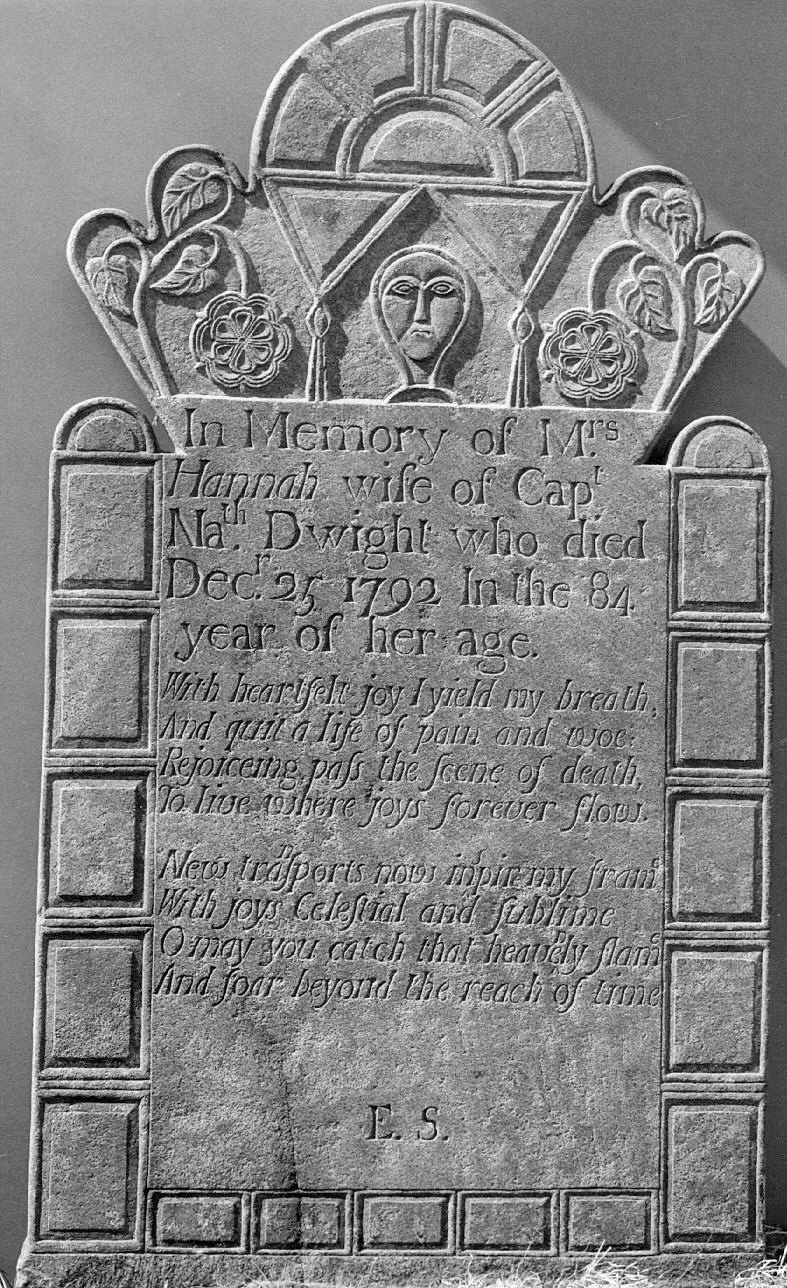 In Memory of M.rs
Hannah wiſe of Cap.t
Na.th Dwight who died
Dec.r 25 1792 In the 84.
year of her age.
With heartfelt joy I yield my breath,
And quit a life of pain and woe:
Rejoiceing, paſs the ſcene of death,
To live where joys forever flow.
New tranſports now inſpire my frame
With joys Celeſtial and ſublime
O may you catch that heavenly flame
And ſoar beyond the reach of time
E. S.